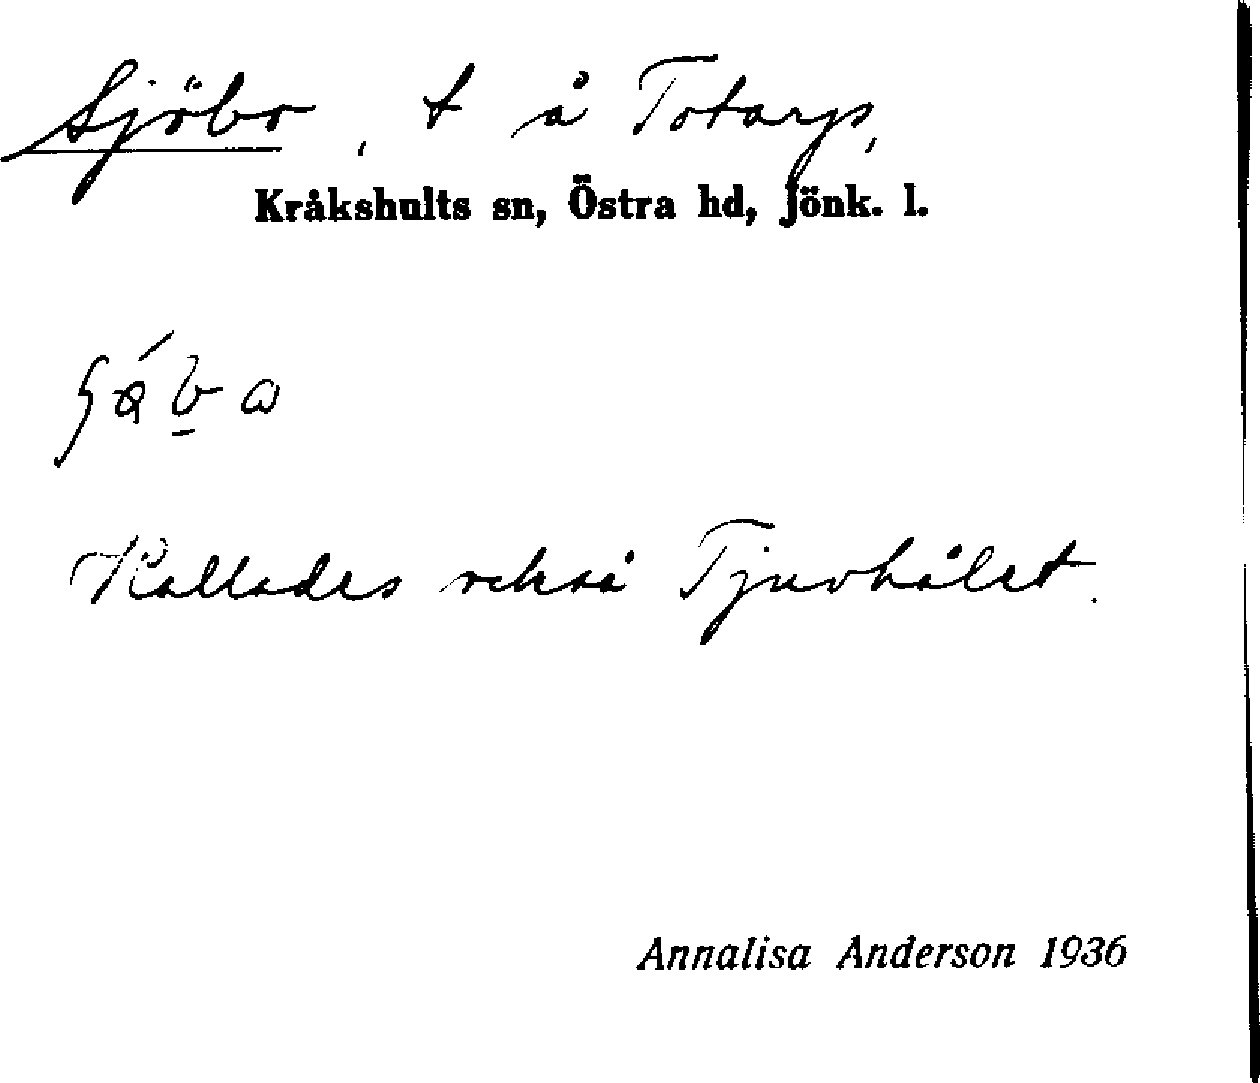 Sjöbo, t å Totarps,
Kråkshults sn, Östra hd, Jönk. l.
Kallades också Tjuvhålet.
Annalisa Anderson 1936